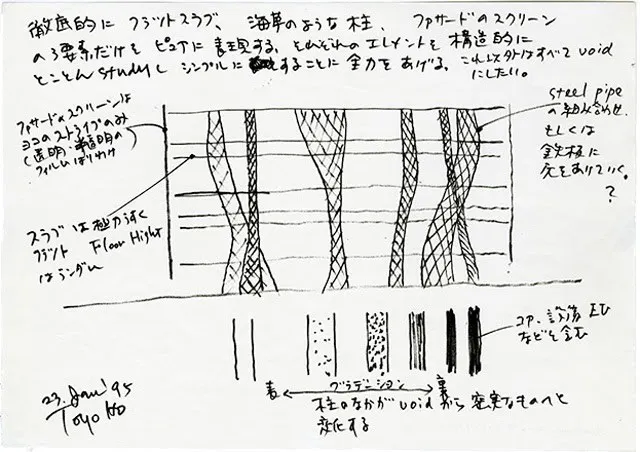 徹底的に フラットスラブ、海草のような柱、ファサードのスクリーン
の3要素だけを ピュアに表現する、それぞれのエレメントを構造的に
とことんstudyし シンプルにすることに全力をあげる、これ以外はすべてvoid
にしたい。
ファサードのスクリーンは
ヨコのストライプのみ
(透明・半透明の
フィルムはりわけ
steel pipe
の組み合わせ、
もしくは
鉄板に
穴をあけていく。
?
スラブは極力うすく
フラット Floor Hight
はランダム
コア、設備 EV
などを含む
表 グラデーション 裏
柱のなかがvoidから密実なものへと
変化する
23. Jan' 95
Toyo Ito